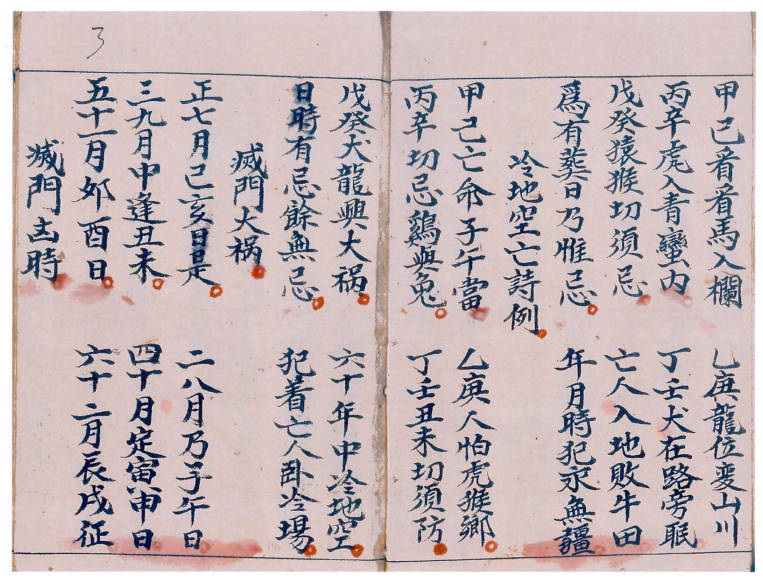 甲己看看馬入欄 乙庚龍位变山川
丙辛虎入青巒内 丁壬犬在路旁眠
戊癸猿猴切須忌 亡人入地敗牛田
為有葬日乃惟忌 年月時犯永無疆
冷地空亡詩例
甲己亡命子午當 乙庚人怕虎猴鄉
丙辛切忌鷄與兔 丁壬丑未切須防
戊癸犬龍興大禍 六十年中冷地空
日時有忌餘無忌 犯着亡人卧冷場
滅門大祸
正七月己亥日是 二八月乃子午日
三九月中逢丑未 四十月定寅申日
五十一月夘酉日 六十二月辰戌征
滅門吉時
3